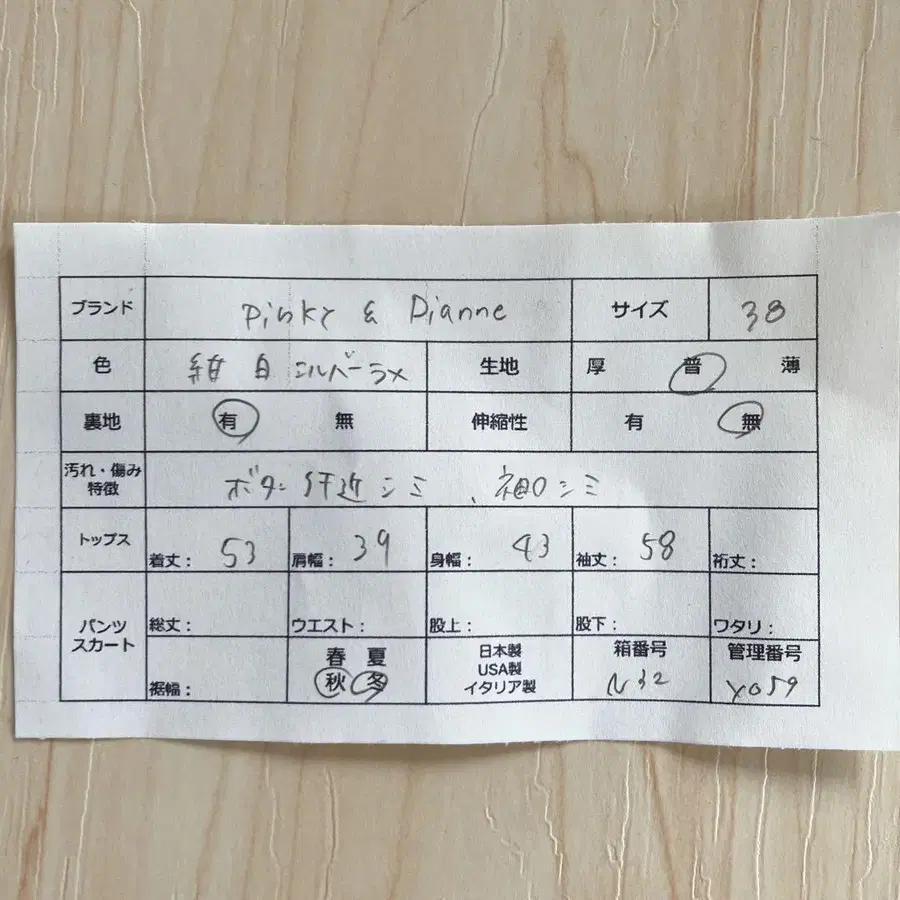 ブランド Pinky & Dianne サイズ 38
色 紺 白 シルバーラメ 生地 厚 普 薄
裏地 有 無 伸縮性 有 無
汚れ・傷み
特徴 ボタン付近シミ、袖口シミ
トップス 着丈: 53 肩幅: 39 身幅: 43 袖丈: 58 裄丈:
パンツ
スカート 総丈: ウエスト: 股上: 股下: ワタリ:
裾幅: 春 夏
秋 冬 日本製
USA製
イタリア製 箱番号
N32 管理番号
Y059